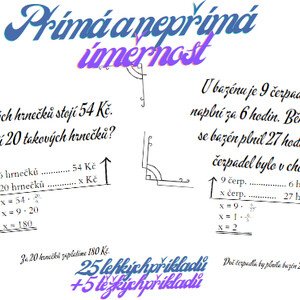 Přímá a nepřímá
úměrnost
ých hrnečků stojí 54 Kč.
í 20 takových hrnečků?
6 hrnečků ............ 54 Kč
20 hrnečků .......... x Kč
x = 54 ·
x = 9 · 20
x = 180
Je 20 hrnečků zaplatíme 180 Kč.
U bazénu je 9 čerpad
naplní za 6 hodin. Bě
se bazén plnil 27 hod
čerpadel bylo v ch
9 čerp. ............ 6 h
x čerp. ............ 27 h
x = 9 ·
x = 1 ·
x = 2
Dvě čerpadla by plnila bazén 2
25 lehkých příkladů
+ 5 těžkých příkladů